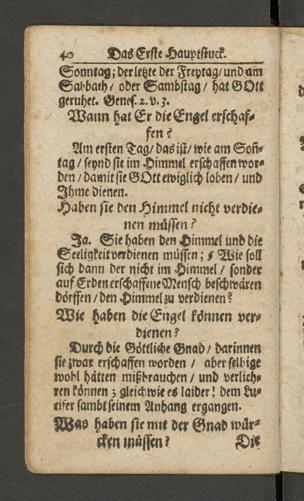 40 Das Erste Hauptstuck.
Sonntag; der letzte der Freytag/ und am
Sabbath/ oder Sambstag/ hat GOtt
geruhet. Genes. 2. v. 3.
Wann hat Er die Engel erschaf-
fen?
Am ersten Tag/ das ist/ wie am Soñ-
tag/ seynd sie im Himmel erschaffen wor-
den/ damit sie GOtt ewiglich loben/ und
Jhme dienen.
Haben sie den Himmel nicht verdie-
nen müssen?
Ja. Sie haben den Himmel und die
Seeligkeit verdienen müssen; Wie soll
sich dann der nicht im Himmel/ sonder
auf Erden erschaffene Mensch beschwären
dörffen/ den Himmel zu verdienen?
Wie haben die Engel können ver-
dienen?
Durch die Göttliche Gnad/ darinnen
sie zwar erschaffen worden/ aber selbige
wohl hätten mißbrauchen/ und verlieh-
ren können; gleichwie es laider! dem Lu-
cifer sambt seinem Anhang ergangen.
Was haben sie mit der Gnad wür-
cken müssen? Die